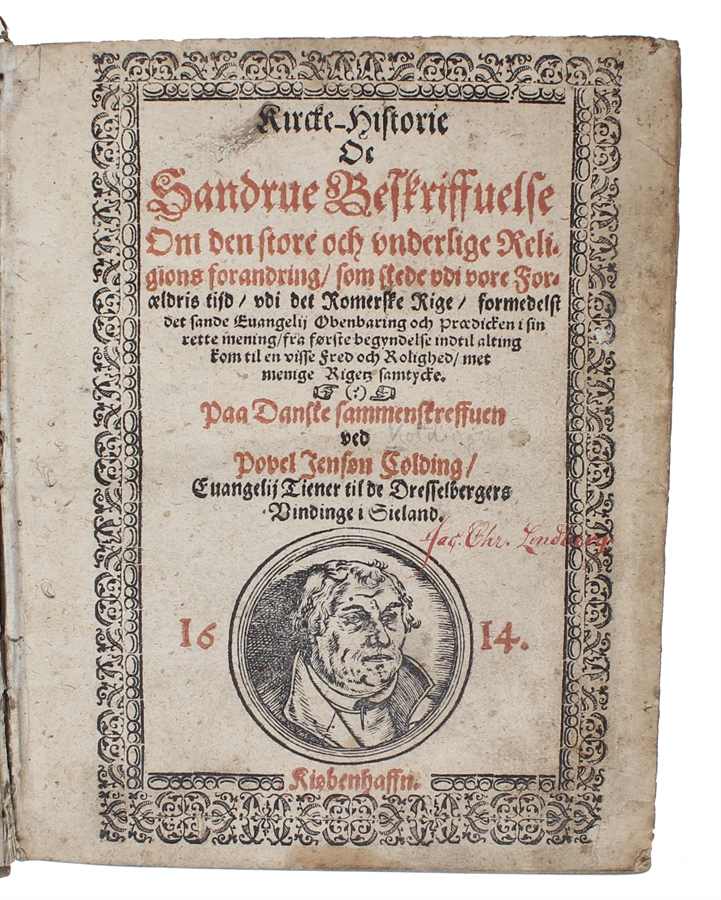 Kircke-Historie
Oc
Sandrue Beskriffuelse
Om den store och vnderlige Reli-
gions forandring/ som skede vdi vore For-
ældris tijd / vdi det Romerske Rige / formedelst
det sande Euangelij Obenbaring och Prædicken i sin
rette mening/ fra første begyndelse indtil alting
kom til en visse Fred och Rolighed/ met
menige Rigens samtycke.
☞ (:) ☜
Paa Danske sammenskreffuen
ved
Kolding
Povel Jensøn Colding/
Euangelij Tiener til de Dresselbergers
Vindinge i Sieland.
Jac. Chr. Lindberg
16 14.
Kiøbenhaffn.